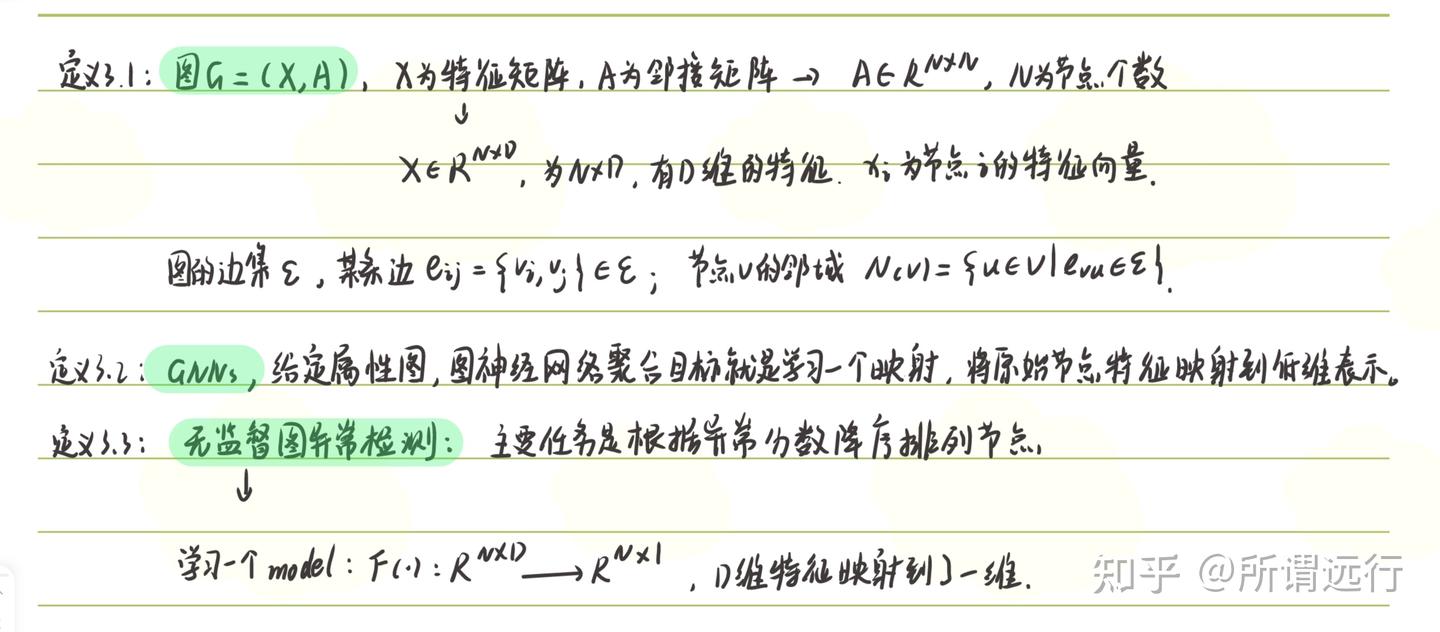 定义3.1: 图G=(X,A), X为特征矩阵, A为邻接矩阵 → A∈R^{N×N}, N为节点个数
↓
X∈R^{N×D}, 为N×D, 有D维的特征. x_i为节点i的特征向量.
图的边集ε, 某条边 e_{ij}={v_i,v_j}∈ε; 节点v的邻域 N(v)={u∈V|e_{vu}∈ε}.
定义3.2: GNNs, 给定属性图, 图神经网络聚合目标就是学习一个映射, 将原始节点特征映射到低维表示。
定义3.3: 无监督图异常检测: 主要任务是根据异常分数降序排列节点,
↓
学习一个model: F(·): R^{N×D} → R^{N×1}, D维特征映射到了一维.
知乎 @所谓远行